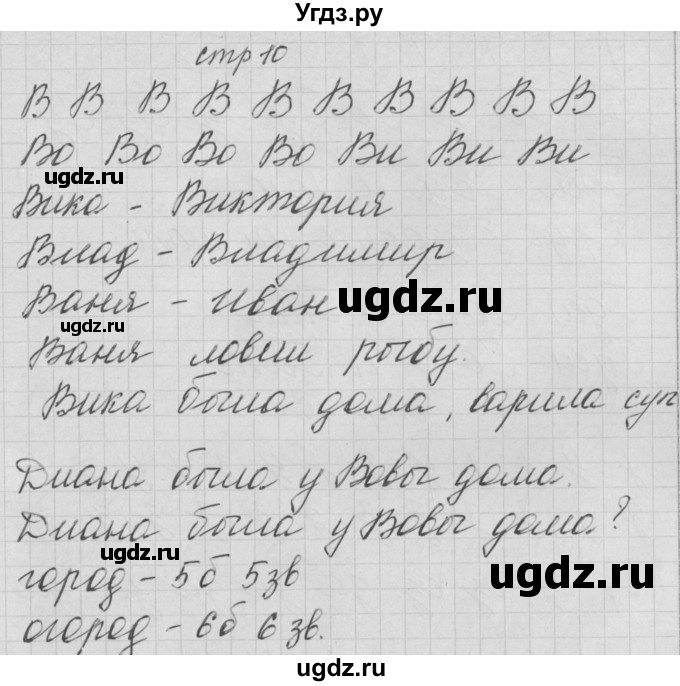 Угдз.ру
стр 10
В В В В В В В В В В
Во Во Во Во Ви Ви Ви
ugdz.ru
Вика - Виктория
Влад - Владимир
Ваня - Иван
ugdz.ru
ugdz.ru
Ваня ловил рыбу.
Вика была дома, варила суп
Диана была у Вовы дома.
Диана была у Вовы дома?
ugdz.ru
город - 5б 5зв
ugdz.ru
огород - 6б 6 зв.
ugdz.ru